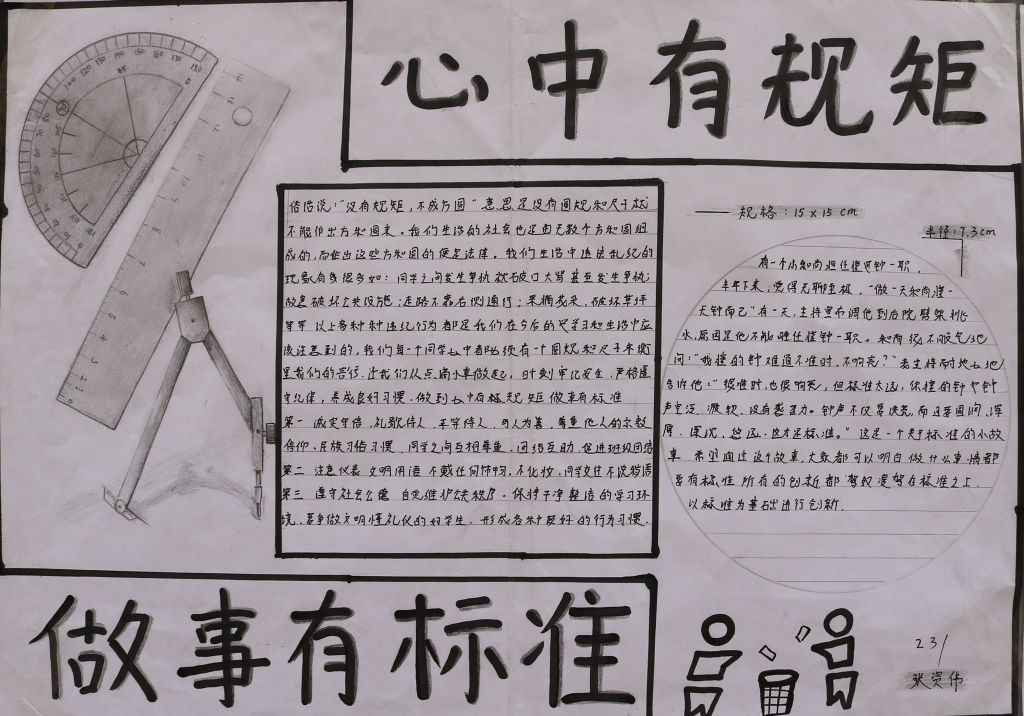 心中有规矩
俗话说:"没有规矩,不成方圆"意思是没有圆规和尺子就
不能作出方和圆来。我们生活的社会也是由无数个方和圆组
成的,而画出这些方和圆的便是法律。我们生活中违法乱纪的
现象有多很多如:同学之间发生争执就破口大骂甚至发生争执;
故意破坏公共设施;走路不靠右侧通行;采摘花朵,破坏草坪
等等 以上各种种违纪行为都是我们在今后的学习和生活中应
该注意到的,我们每一个同学心中都必须有一个圆规和尺子来衡
量我们的言行。让我们从点滴小事做起,时刻牢记安全,严格遵
守纪律,养成良好习惯。做到心中有标尺规矩做事有标准
第一 诚实守信,礼貌待人,平等待人,与人为善,尊重他人的宗教
信仰、民族习俗习惯,同学之间互相尊重,团结互助,促进班级团结
第二 注意仪表 文明用语 不戴任何饰物,不化妆,同学交往不说粗话
第三 遵守社会公德 自觉维护公共秩序。保持干净整洁的学习环
境,要争做文明懂礼仪的好学生,形成各种良好的行为习惯.
规格:15x15cm
半径:7.3cm
有一个小和尚担任撞钟一职,
半年下来,觉得无聊至极,"做一天和尚撞一
天钟而已"有一天,主持宣布调他到后院劈柴挑
水,原因是他不能胜任撞钟一职。和尚很不服气地
问:"我撞的钟难道不准时、不响亮?"老主持耐心地
告诉他:"很准时,也很响亮,但标准太远,你撞的钟
声空泛、疲软,没有感召力。钟声不仅要洪亮,而且要圆润、浑
厚、深沉、悠远,这才是标准。"这是一个关于标准的小故
事,希望通过这个故事,大家都可以明白做什么事情都
要有标准 所有的创新都
以标准为基础进行创新.
做事有标准
231
张贤伟